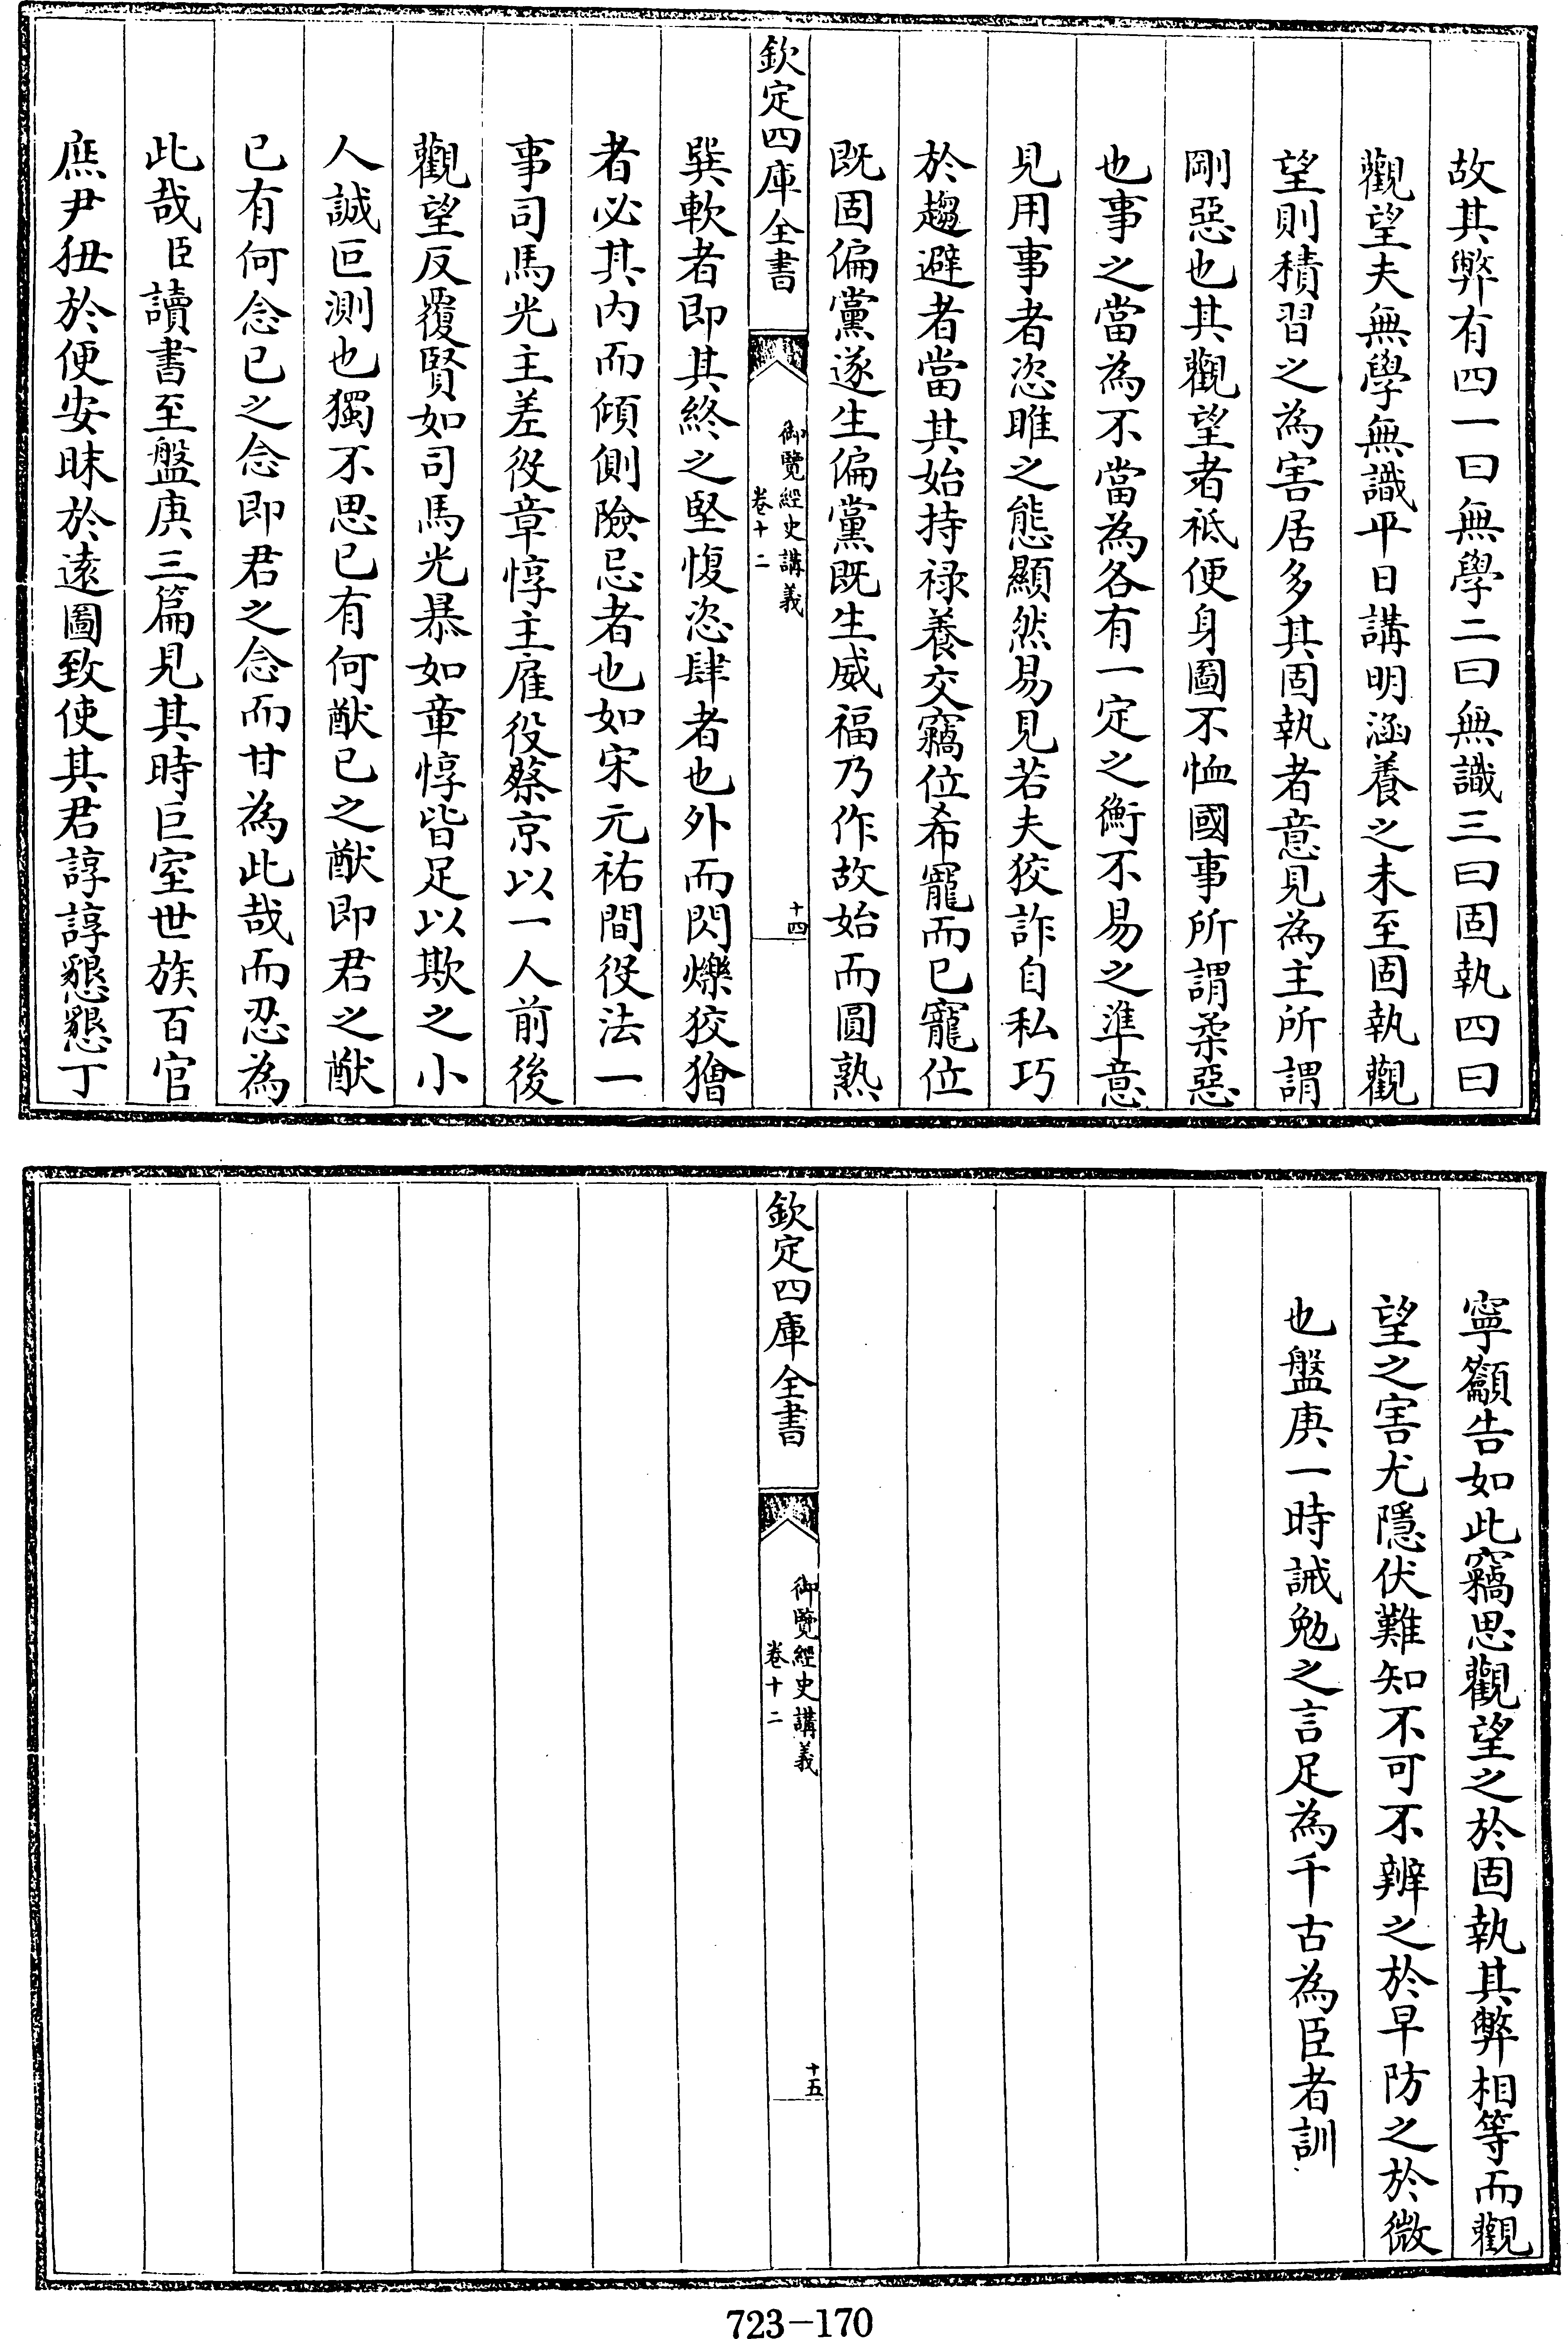 故其弊有四一曰無學二曰無識三曰固執四曰
觀望夫無學無識平日講明涵養之未至固執觀
望則積習之為害居多其固執者意見為主所謂
剛惡也其觀望者袛便身圖不恤國事所謂柔惡
也事之當為不當為各有一定之衡不易之準意
見用事者恣睢之態顯然易見若夫狡詐自私巧
於趨避者當其始持祿養交竊位希寵而已寵位
既固偏黨遂生偏黨既生威福乃作故始而圓熟
欽定四庫全書
御覽經史講義
卷十二
十四
巽軟者即其終之堅愎恣肆者也外而閃爍狡獪
者必其内而傾側險忌者也如宋元祐間役法一
事司馬光主差役章惇主雇役蔡京以一人前後
觀望反覆賢如司馬光暴如章惇皆足以欺之小
人誠叵測也獨不思已有何猷已之猷即君之猷
已有何念已之念即君之念而甘為此哉而忍為
此哉臣讀書至盤庚三篇見其時巨室世族百官
庶尹狃於便安昧於逺圖致使其君諄諄懇懇丁
寧籲告如此竊思觀望之於固執其弊相等而觀
望之害尤隱伏難知不可不辨之於早防之於微
也盤庚一時誡勉之言足為千古為臣者訓
欽定四庫全書
御覽經史講義
卷十二
十五
723-170